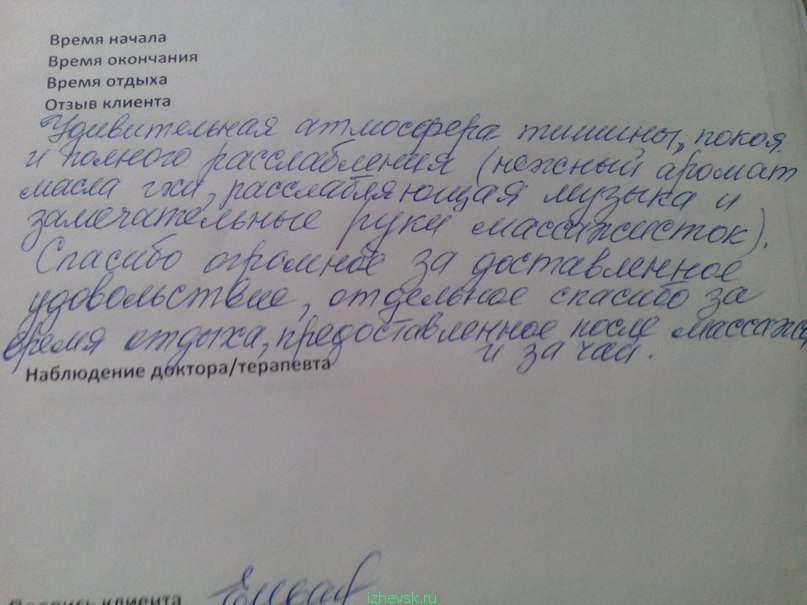 Время начала
Время окончания
Время отдыха
Отзыв клиента
Удивительная атмосфера тишины, покоя
и полного расслабления (нежный аромат
масла гхи, расслабляющая музыка и
замечательные руки массажисток).
Спасибо огромное за доставленное
удовольствие, отдельное спасибо за
время отдыха, предоставленное после массажа
и за чай.
Наблюдение доктора/терапевта
Подпись клиента
izhevsk.ru